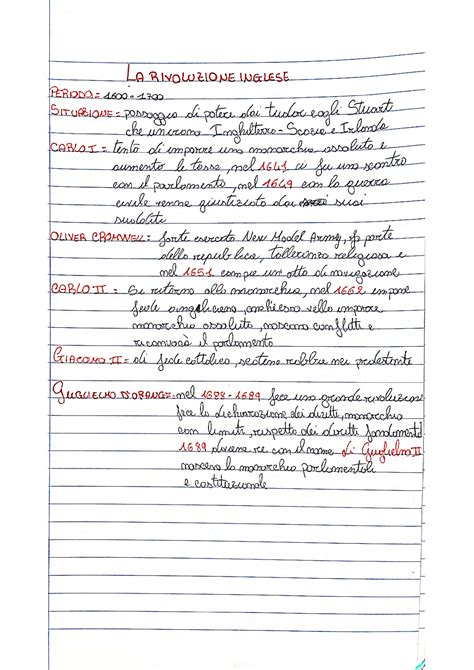 LA RIVOLUZIONE INGLESE
PERIODO = 1600 - 1700
SITUAZIONE = passaggio di potere dai tudor agli Stuart
che univano Inghilterra - Scozia e Irlanda
CARLO I = tentò di imporre una monarchia assoluta e
aumentò le tasse, nel 1641 ci fu uno scontro
con il parlamento, nel 1649 con la guerra
civile venne giustiziato dai suoi
sudditi
OLIVER CROMWELL = forte esercito New Model Army, fa parte
della repubblica, tolleranza religiosa e
nel 1651 compie un atto di navigazione
CARLO II = Si ritorna alla monarchia, nel 1662 impone
fede anglicana, vello imporre
monarchia assoluta, nascono conflitti e
riconvocò il parlamento
GIACOMO II = di fede cattolica, rabbia nei protestanti
GUGLIELMO D'ORANGE = nel 1688 - 1689 fece una grande rivoluzione
fece la dichiarazione dei diritti, monarchia
con limiti, rispetto dei diritti fondamentali
1689 divenne re con il nome di Guglielmo II
nascono la monarchia parlamentale
e costituzionale